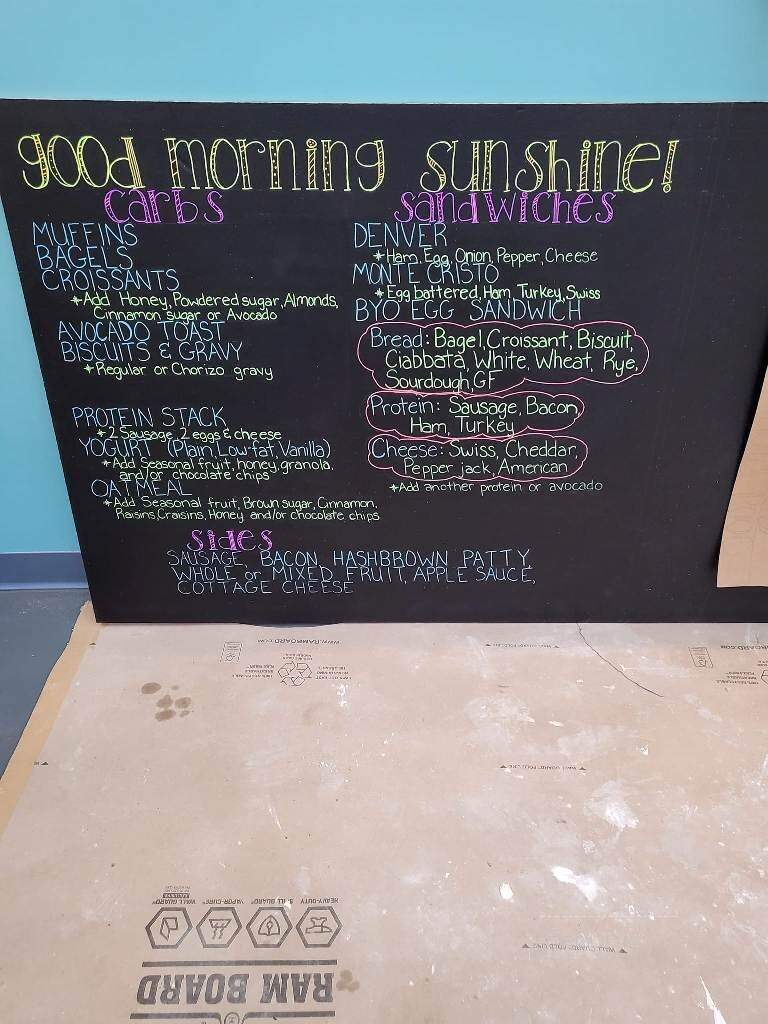 good morning sunshine!
carbs
MUFFINS
BAGELS
CROISSANTS
+Add Honey, Powdered sugar, Almonds,
Cinnamon sugar or Avocado
AVOCADO TOAST
BISCUITS & GRAVY
+Regular or Chorizo gravy
PROTEIN STACK
+2 Sausage, 2 eggs & cheese
YOGURT (Plain, Low-fat, Vanilla)
+Add Seasonal fruit, honey, granola,
and/or chocolate chips
OATMEAL
+Add Seasonal fruit, Brown sugar, Cinnamon,
Raisins, Craisins, Honey and/or chocolate chips
sandwiches
DENVER
+Ham, Egg, Onion, Pepper, Cheese
MONTE CRISTO
+Egg battered, Ham, Turkey, Swiss
BYO EGG SANDWICH
Bread: Bagel, Croissant, Biscuit,
Ciabbata, White, Wheat, Rye,
Sourdough, GF
Protein: Sausage, Bacon,
Ham, Turkey
Cheese: Swiss, Cheddar,
Pepper jack, American
+Add another protein or avocado
sides
SAUSAGE, BACON, HASHBROWN PATTY
WHOLE or MIXED FRUIT, APPLE SAUCE,
COTTAGE CHEESE
WWW.RAMBOARD.COM
HEAVY-DUTY SPILL GUARD VAPOR-CURE WALL GUARD
RAM BOARD